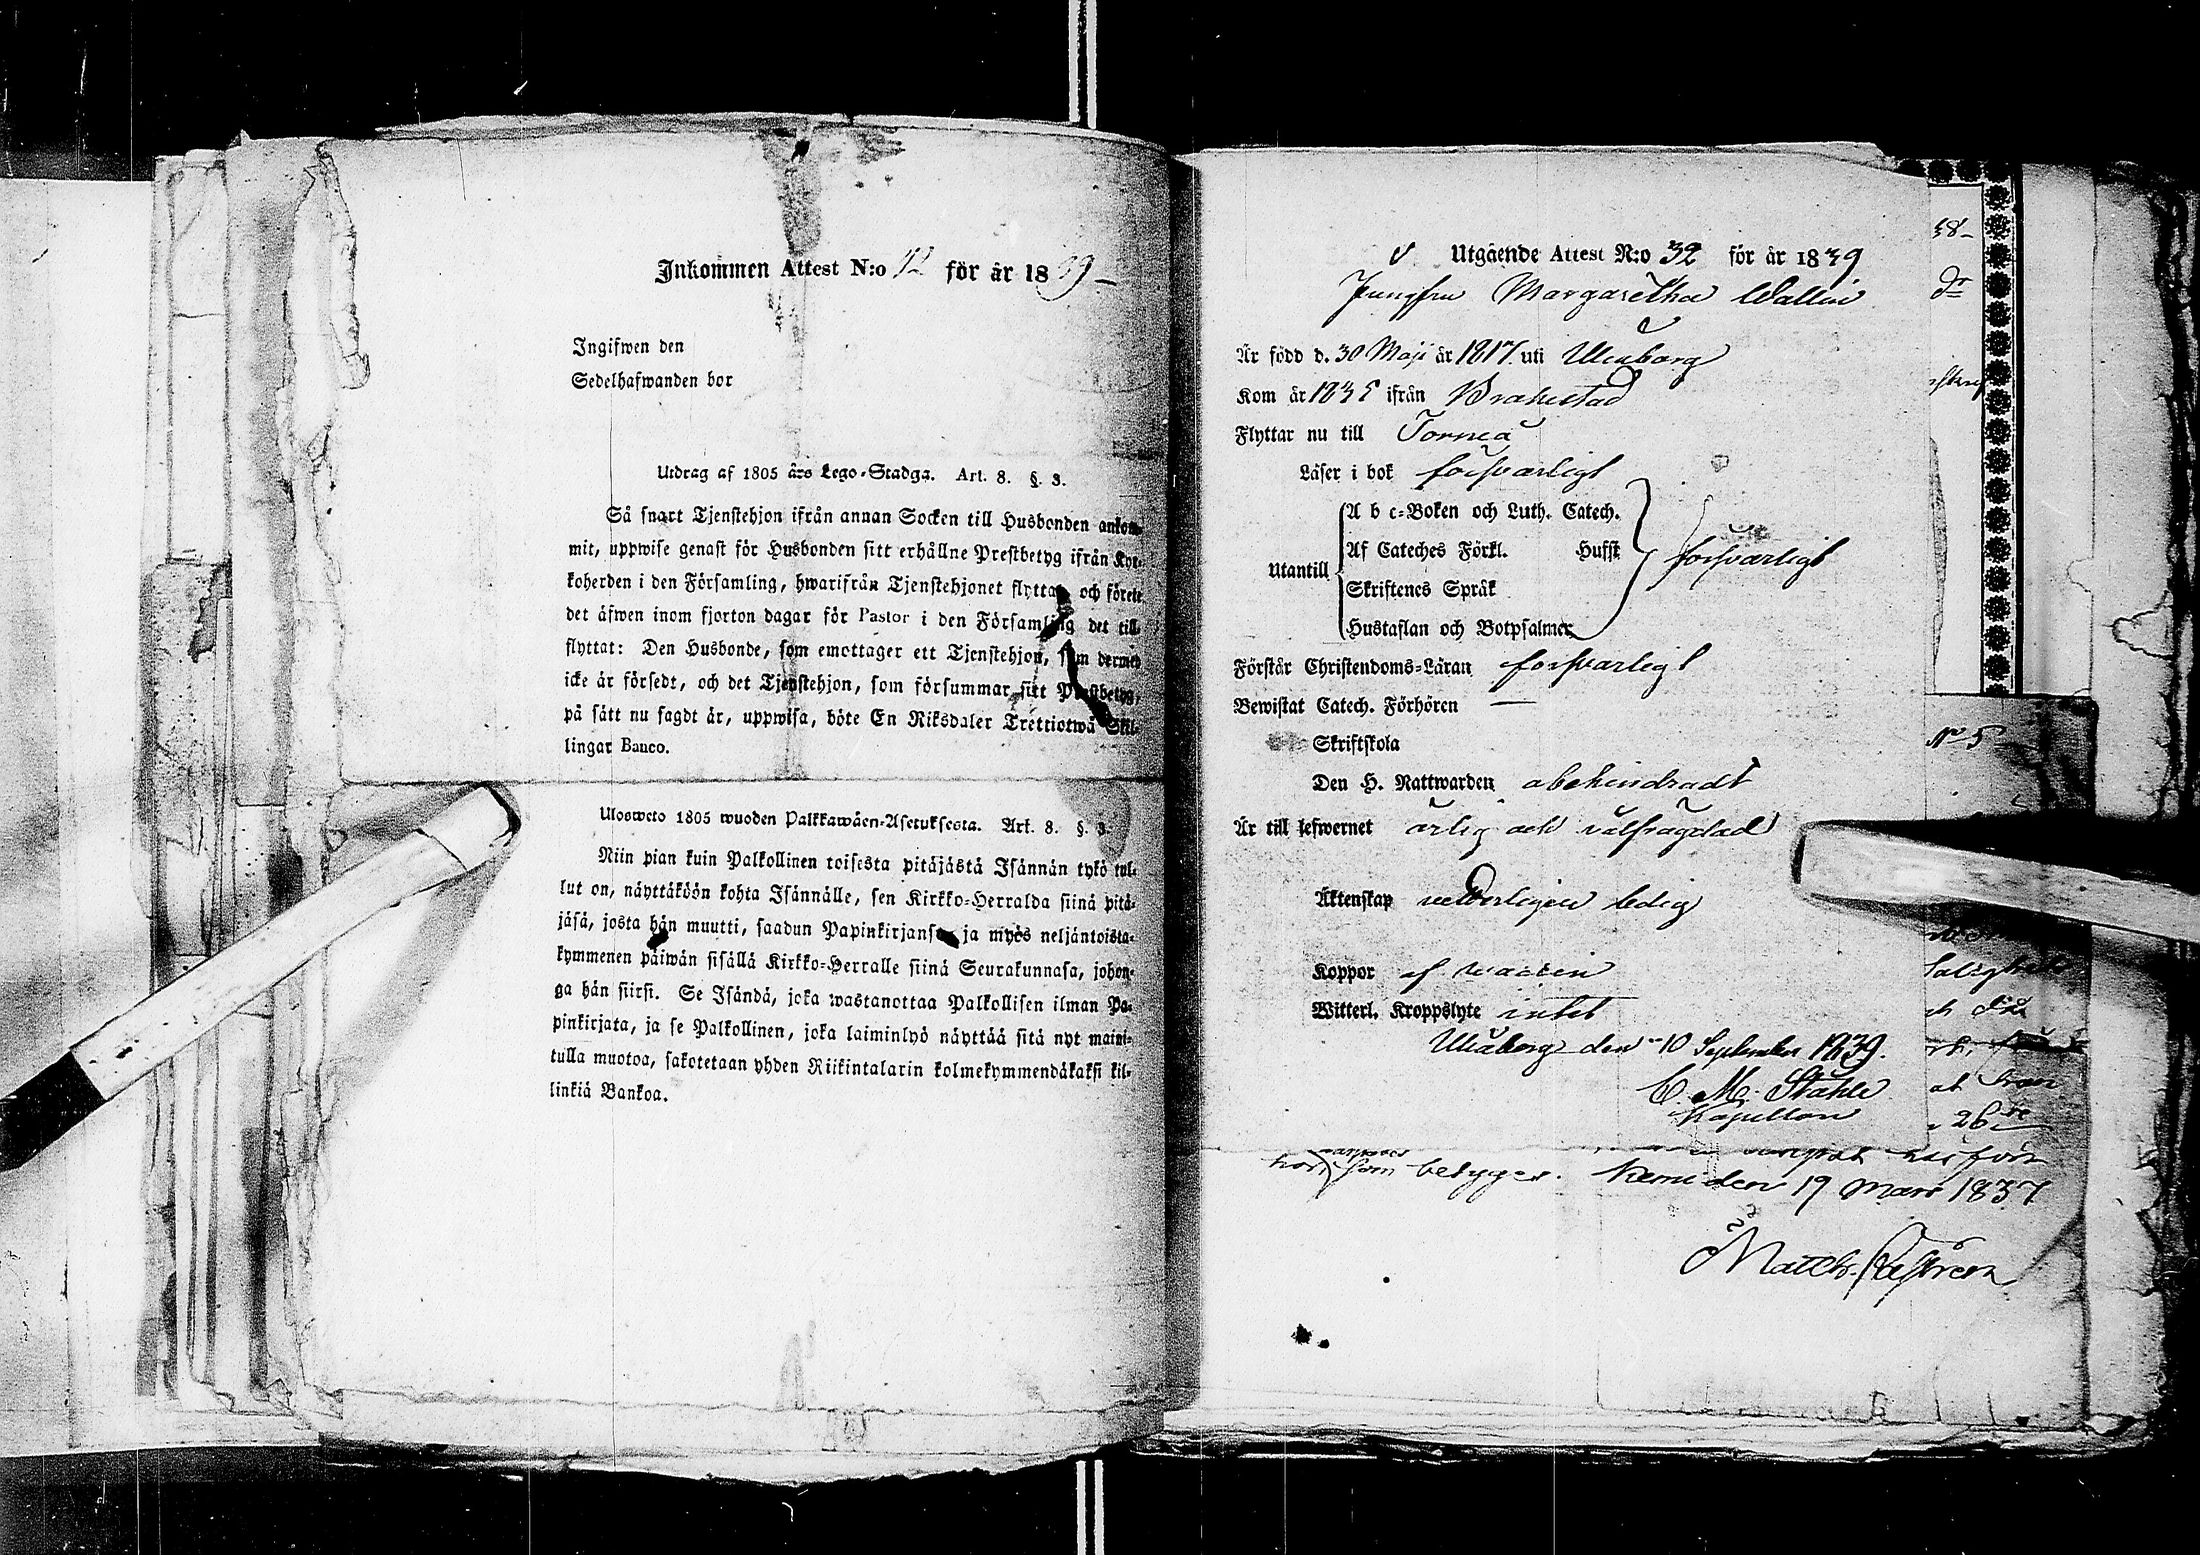 Inkommen Attest N:o 12 för år 1839
Ingifwen den
Sedelhafwanden bor
Utdrag af 1805 års Lego-Stadga. Art. 8. §. 3.
Så snart Tjenstehjon ifrån annan Socken till Husbonden ankom-
mit, uppwise genast för Husbonden sitt erhållne Prestbetyg ifrån Kyr-
koherden i den Församling, hwarifrån Tjenstehjonet flyttat, och förete
det äfwen inom fjorton dagar för Pastor i den Församling det till-
flyttat: Den Husbonde, som emottager ett Tjenstehjon, som dermed
icke är försedt, och det Tjenstehjon, som försummar sitt Prestbetyg,
på sätt nu sagdt är, uppwisa, böte En Riksdaler Trettiotwå Skil-
lingar Banco.
Ulosweto 1805 wuoden Palkkawäen-Asetuksesta. Art. 8. §. 3.
Niin pian kuin Palkollinen toisesta pitäjästä Isännän tykö tul-
lut on, näyttäköön kohta Isännälle, sen Kirkko-Herralda siinä pitä-
jäsä, josta hän muutti, saadun Papinkirjansa, ja myös neljäntoista-
kymmenen päiwän sisällä Kirkko-Herralle siinä Seurakunnasa, johon-
ga hän siirsi. Se Isändä, joka wastanottaa Palkollisen ilman Pa-
pinkirjata, ja se Palkollinen, joka laiminlyö näyttää sitä nyt maini-
tulla muotoa, sakotetaan yhden Riikintalarin kolmekymmendäkaksi kil-
linkiä Bankoa.
Utgående Attest N:o 32 för år 1839
Jungfru Margaretha Wallin
Är född d. 30 Maji år 1817 uti Uleaborg
Kom år 1835 ifrån Brahestad
Flyttar nu till Torneå
Läser i bok försvarligt
Utantill
A b c-Boken och Luth. Catech.
Af Cateches Förkl. Hufst
Skriftenes Språk
Hustaflan och Botpsalmer
försvarligt
Förstår Christendoms-Läran försvarligt
Bewistat Catech. Förhören —
Skriftskola
Den H. Nattwarden obehindradt
Är till lefwernet ärlig och välfrägdad
Äktenskap veterligen ledig
Koppor af vaccin
Witterl. Kroppslyte intet
Uleåborg den 10 September 1839.
C. M. Ståhle
Kapellan
38-
dr
No 5
Salighets
at från
26
som betygar. Kemi den 19 Mars 1837
Matth. Castrén